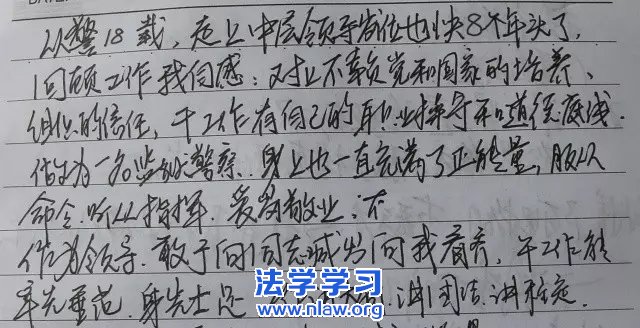 从警18载，走上中层领导岗位也快8个年头了，
回顾工作我何感：对上不辜负党和国家的培养、
组织的信任，干工作有自己的职业操守和道德底线。
作为一名监狱警察，身上也一直充满了正能量，服从
命令、听从指挥、爱岗敬业、不
作为领导，敢于向同志喊出向我看齐，干工作能
率先垂范，身先士足 讲团结、讲稳定
法学学习
www.nlaw.org